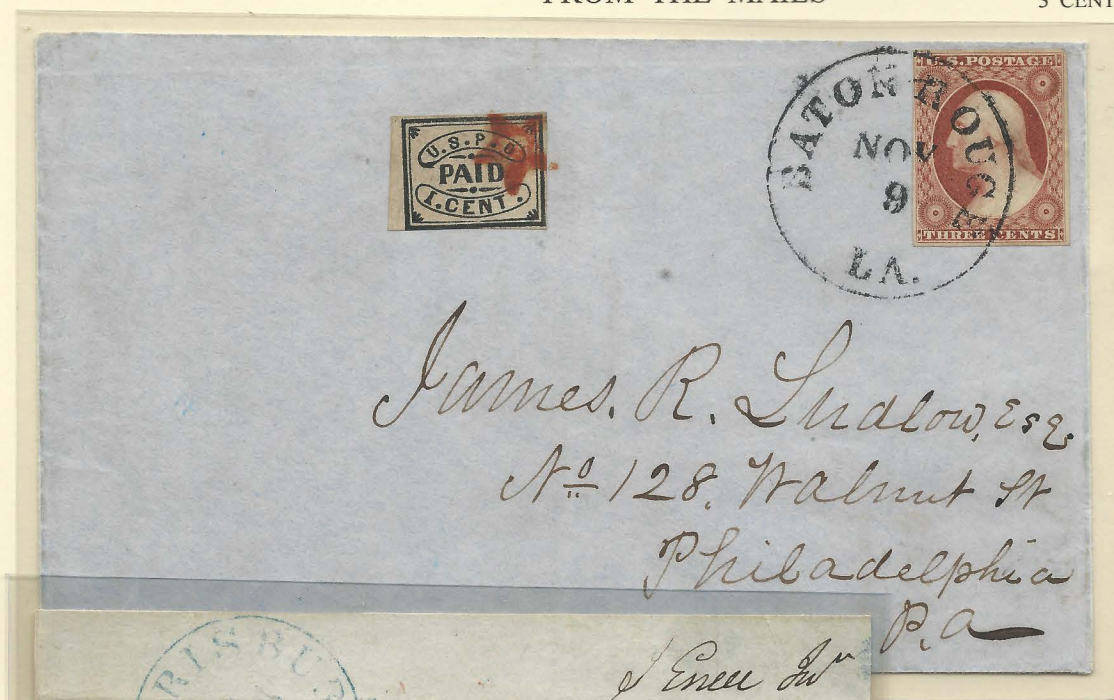 FROM THE MAILS
3 CENT
U.S.P.O
PAID
1.CENT.
BATON ROUGE
NOV
9
LA.
U.S. POSTAGE
THREE CENTS
James. R. Ludlow, Esq.
No 128. Walnut St
Philadelphia
P.a
RISBUR